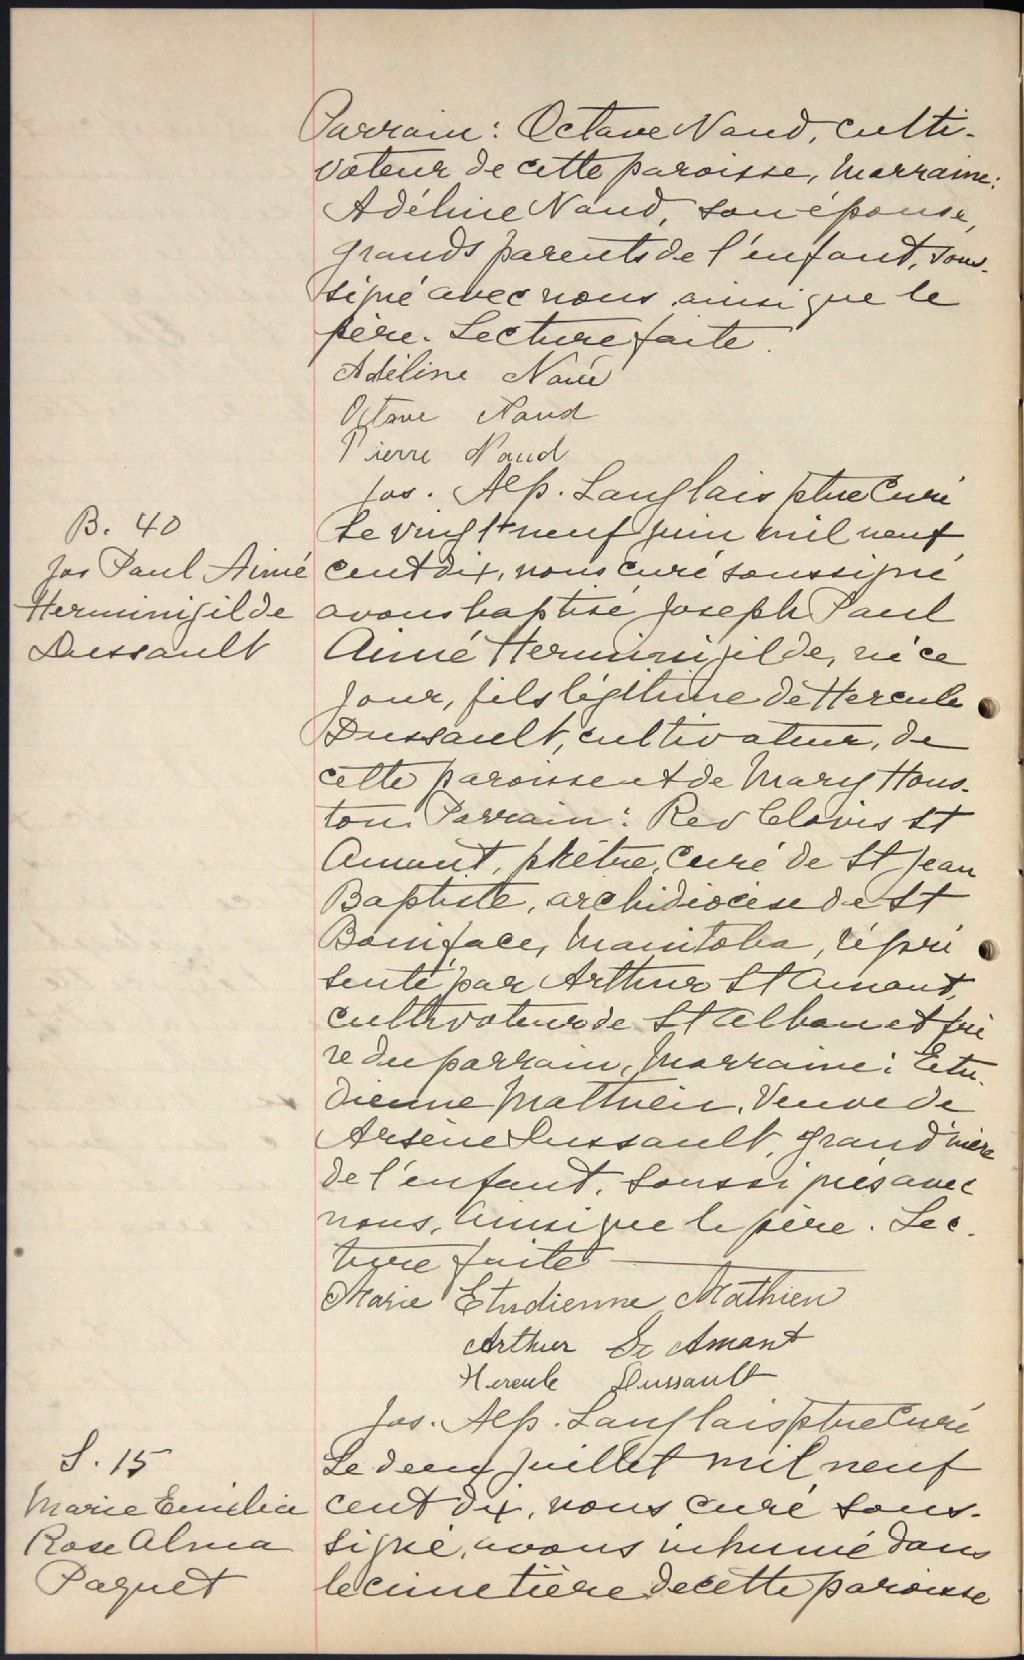 Parrain: Octave Naud, culti-
vateur de cette paroisse, Marraine:
Adéline Naud, son épouse,
grands parents de l'enfant, sous-
signé avec nous ainsi que le
père. Lecture faite.
Adéline Naud
Octave Naud
Pierre Naud
Jos. Alp. Langlais ptre Curé
B. 40
Jos Paul Aimé
Herminigilde
Dussault
Le vingt neuf juin mil neuf
cent dix, nous curé soussigné
avons baptisé Joseph Paul
Aimé Herminigilde, né ce
jour, fils légitime de Hercule
Dussault, cultivateur, de
cette paroisse et de Mary Hous-
ton. Parrain: Rev Clovis St
Amant, prêtre, Curé de St Jean
Baptiste, archidiocèse de St
Boniface, Manitoba, répré
senté par Arthur St Amant,
cultivateur de St Alban et frè
re du parrain, Marraine: Etu-
dienne Mathieu, Veuve de
Arsène Dussault, grand'mère
de l'enfant, soussignés avec
nous, ainsi que le père. Lec-
ture faite
Marie Etudienne Mathieu
Arthur St Amant
Hercule Dussault
Jos. Alp. Langlais ptre Curé
S. 15
Marie Emilia
Rose Alma
Paquet
Le deux juillet mil neuf
cent dix, nous curé sous-
signé, avons inhumé dans
le cimetière de cette paroisse